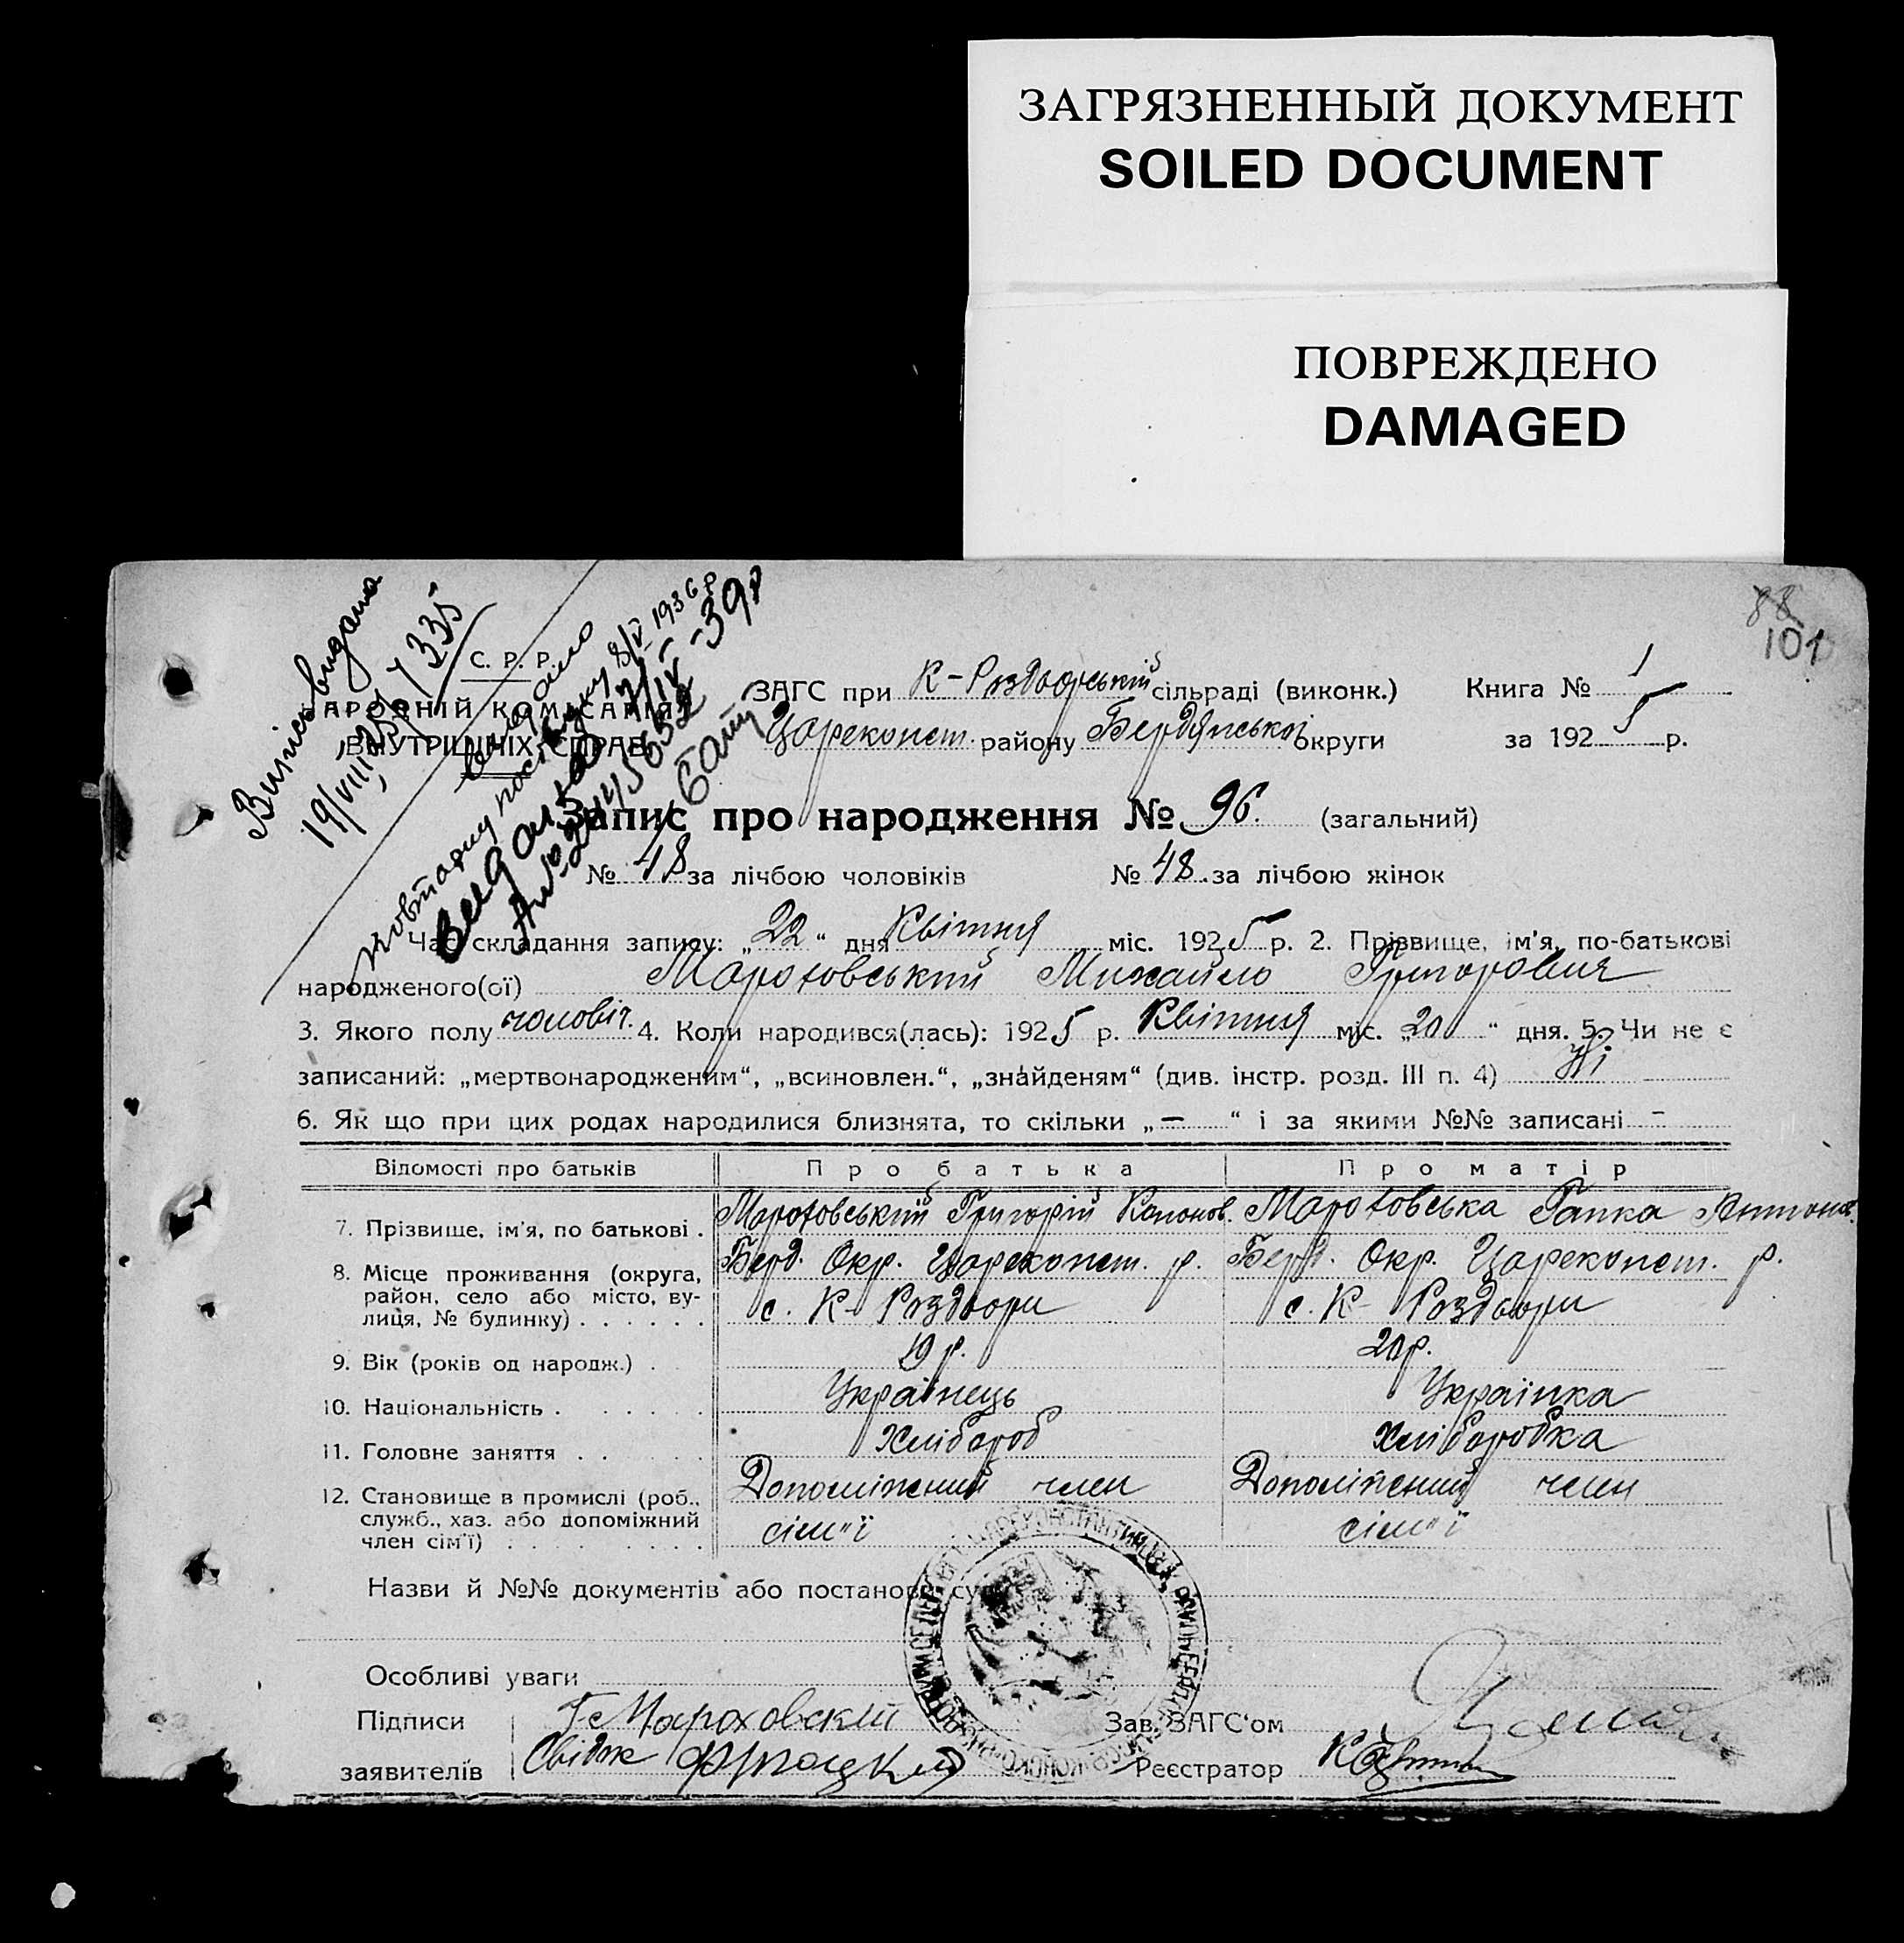 ЗАГРЯЗНЕННЫЙ ДОКУМЕНТ
SOILED DOCUMENT
ПОВРЕЖДЕНО
DAMAGED
88
101
Випись видана
19/VIII 335
видано
8/V 1936 р
С. Р. Р.
АРОДНІЙ КОМІСАРІЯТ
ВНУТРІШНІХ СПРАВ
ЗАГС при К-Роздорській сільраді (виконк.) Книга № 1
Цареконст. району Бердянської округи за 1925 р.
Запис про народження № 96. (загальний)
№ 48 за лічбою чоловіків № 48. за лічбою жінок
Час складання запису: „22“ дня Квітня міс. 1925 р. 2. Прізвище, ім'я, по-батькові
народженого(ої) Мароховський Михайло Григорович
3. Якого полу чоловіч. 4. Коли народився(лась): 1925 р. Квітня міс. „20“ дня. 5. Чи не є
записаний: „мертвонародженим“, „всиновлен.“, „знайденям“ (див. інстр. розд. III п. 4) Ні
6. Як що при цих родах народилися близнята, то скільки „—“ і за якими №№ записані —
Відомості про батьків Про батька Про матір
7. Прізвище, ім'я, по батькові . Мароховський Григорій Кононов. Мароховська Гапка Антонов.
8. Місце проживання (округа, Берд. Окр. Цареконст. р. Берд. Окр. Цареконст. р.
район, село або місто, ву- с. К- Роздори с. К- Роздори
лиця, № будинку) . . . . . .
9. Вік (років од народж.) . 19 р. 20 р.
10. Національність . . . . . Українець Українка
11. Головне заняття . . . Хлібороб Хліборобка
12. Становище в промислі (роб., Допоміжний член Допоміжний член
служб., хаз. або допоміжний сім"ї сім"ї
член сім'ї) . . . . . . . .
Назви й №№ документів або постанов суду
Особливі уваги
Підписи Г Мароховский Зав. ЗАГС'ом
заявителів Свідок Реєстратор